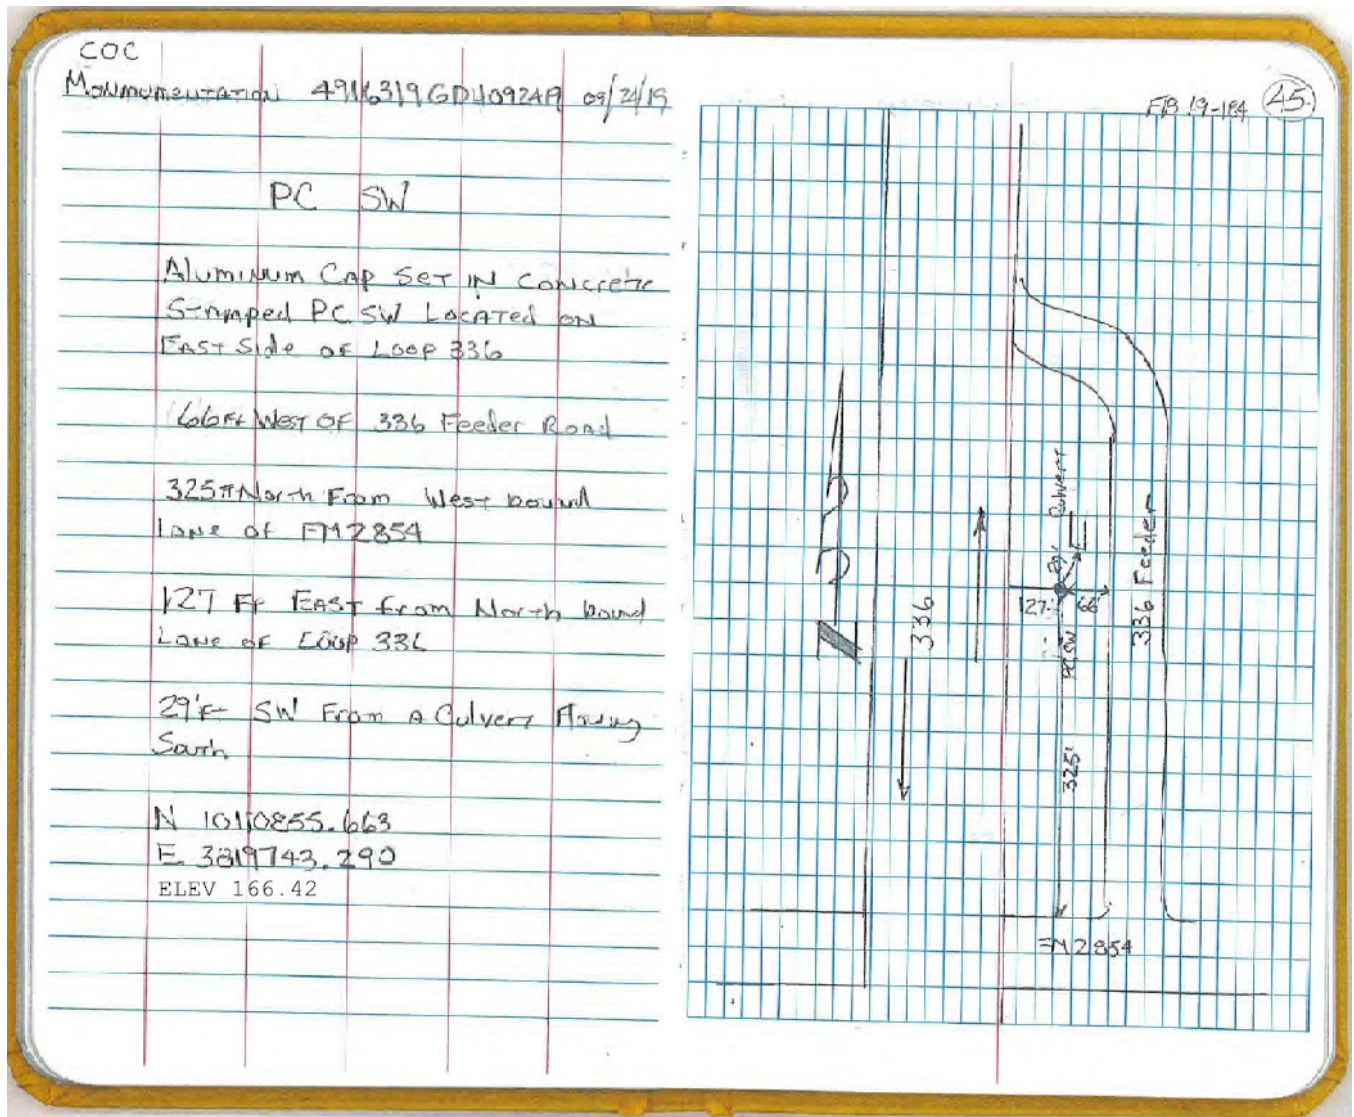 COC
Monmumentation 4916319GDU0924A 09/24/19
PC SW
Aluminum Cap Set in Concrete
Stamped PC SW Located on
East Side of Loop 336
66 Ft West of 336 Feeder Road
325 ft North From West bound
lane of FM2854
127 Ft East from North bound
Lane of Loop 336
29' Ft SW From a Culvert Flowing
South
N 10110855.663
E 3819743.290
ELEV 166.42
FB 19-184 45
Culvert
29'
127'
66'
336
336 Feeder
PC SW
325'
FM2854